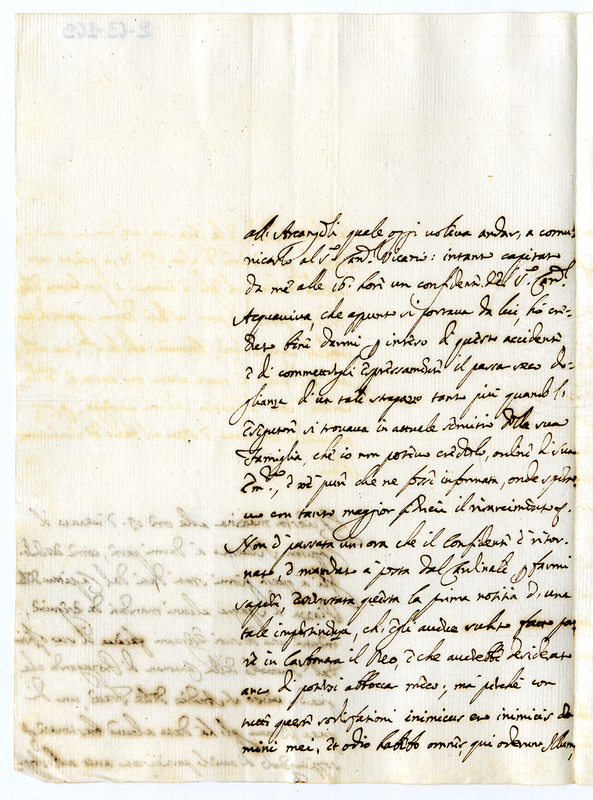 all'Arcangeli quale oggi voleva andare a comu-
nicarlo al S.r Card.l Vicario: intanto capitato
da me alle 16 hore un confidente del S.r Card.l
Acquaviva, che appunto si portava da lui, ho cre-
duto bene darmi p inteso di questo accidente
e di commettergli espressamente il passar seco do-
glianza di un tale strapazzo tanto più quando l'
esecutore si trovava in attuale servitio della sua
famiglia, che io non potevo crederlo, ordine di Sua
Em.za, e né pure che ne fosse informata, onde spera-
vo con tanto maggior fiducia il risarcimento
Non è passata un'ora che il confidente è ritor-
nato, e mandato a posta dal Cardinale p farmi
sapere, essere stata questa la prima notitia di una
tale impertinenza, che egli aveva subito fatto por-
re in Carbonara il Reo, e che averebbe desiderato
anco di potersi abboccar meco; ma perché con
tutte queste sodisfationi inimicus ero inimicis do
mini mei, et odio habebo omnes, qui oderunt Illum,